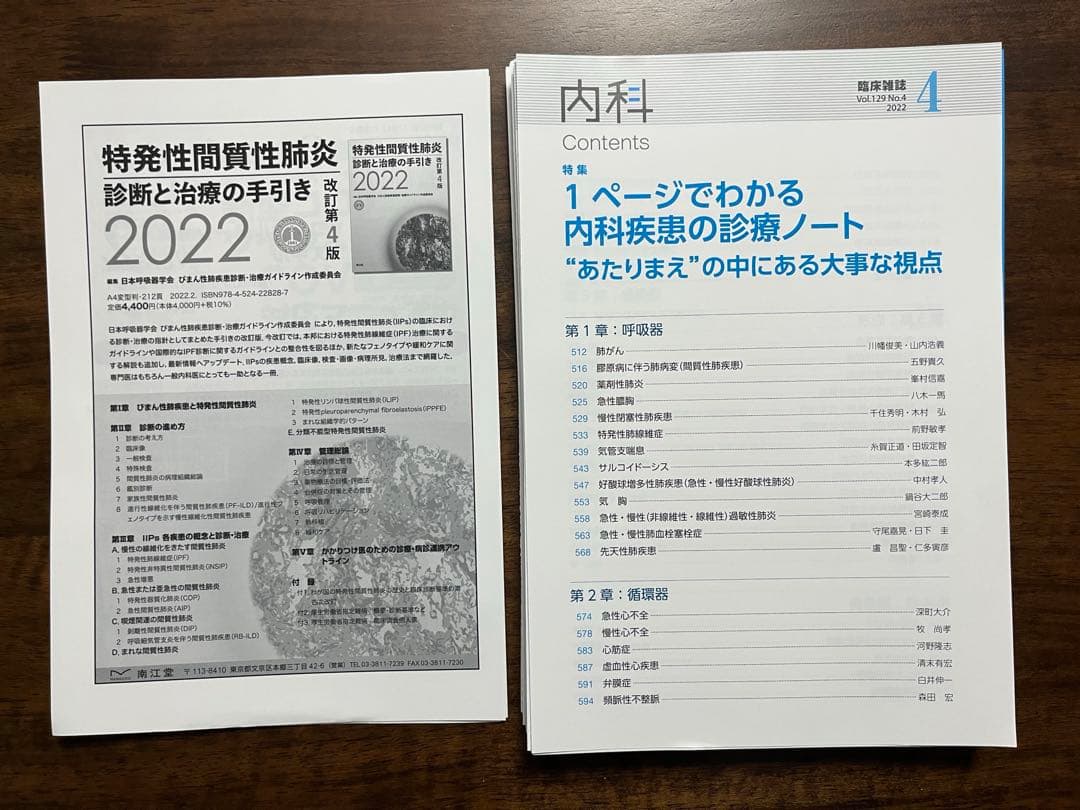 特発性間質性肺炎
診断と治療の手引き
2022
改訂第4版
特発性間質性肺炎
診断と治療の手引き
2022
改訂第4版
編集 日本呼吸器学会 びまん性肺疾患診断・治療ガイドライン作成委員会
A4変型判・212頁 2022.2. ISBN978-4-524-22828-7
定価4,400円(本体4,000円+税10%)
日本呼吸器学会 びまん性肺疾患診断・治療ガイドライン作成委員会 により、特発性間質性肺炎(IIPs)の臨床におけ
る診断・治療の指針としてまとめた手引きの改訂版。今改訂では、本邦における特発性肺線維症(IPF)治療に関する
ガイドラインや国際的なIPF診断に関するガイドラインとの整合性を図るほか、新たなフェノタイプや緩和ケアに関
する解説も追加し、最新情報へアップデート。IIPsの疾患概念、臨床像、検査・画像・病理所見、治療法まで網羅した、
専門医はもちろん一般内科医にとっても一助となる一冊。
第Ⅰ章 びまん性肺疾患と特発性間質性肺炎
第Ⅱ章 診断の進め方
1 診断の考え方
2 臨床像
3 一般検査
4 特殊検査
5 間質性肺炎の病理組織総論
6 鑑別診断
7 家族性間質性肺炎
8 進行性線維化を伴う間質性肺疾患(PF-ILD)/進行性フ
ェノタイプを示す慢性線維化性間質性肺疾患
第Ⅲ章 IIPs 各疾患の概念と診断・治療
A. 慢性の線維化をきたす間質性肺炎
1 特発性肺線維症(IPF)
2 特発性非特異性間質性肺炎(NSIP)
3 急性増悪
B. 急性または亜急性の間質性肺炎
1 特発性器質化肺炎(COP)
2 急性間質性肺炎(AIP)
C. 喫煙関連の間質性肺炎
1 剥離性間質性肺炎(DIP)
2 呼吸細気管支炎を伴う間質性肺疾患(RB-ILD)
D. まれな間質性肺炎
1 特発性リンパ球性間質性肺炎(iLIP)
2 特発性pleuroparenchymal fibroelastosis(iPPFE)
3 まれな組織学的パターン
E. 分類不能型特発性間質性肺炎
第Ⅳ章 管理総論
1 治療の目標と管理
2 日常の生活管理
3 薬物療法の目標・評価法
4 合併症の対策とその管理
5 呼吸管理
6 呼吸リハビリテーション
7 肺移植
8 緩和ケア
第Ⅴ章 かかりつけ医のための診療・病診連携アウ
トライン
付 録
南江堂 〒113-8410 東京都文京区本郷三丁目42-6 (営業) TEL 03-3811-7239 FAX 03-3811-7230
内科
Contents
臨床雑誌
Vol.129 No.4
2022
4
特集
1ページでわかる
内科疾患の診療ノート
“あたりまえ”の中にある大事な視点
第1章:呼吸器
512 肺がん 川幡俊美・山内浩義
516 膠原病に伴う肺病変(間質性肺疾患) 五野貴久
520 薬剤性肺炎 峯村信嘉
525 急性膿胸 八木一馬
529 慢性閉塞性肺疾患 千住秀明・木村 弘
533 特発性肺線維症 前野敏孝
539 気管支喘息 糸賀正道・田坂定智
543 サルコイドーシス 本多紘二郎
547 好酸球増多性肺疾患(急性・慢性好酸球性肺炎) 中村孝人
553 気 胸 鍋谷大二郎
558 急性・慢性(非線維性・線維性)過敏性肺炎 宮崎泰成
563 急性・慢性肺血栓塞栓症 守尾嘉晃・日下 圭
568 先天性肺疾患 盧 昌聖・仁多寅彦
第2章:循環器
574 急性心不全 深町大介
578 慢性心不全 牧 尚孝
583 心筋症 河野隆志
587 虚血性心疾患 清末有宏
591 弁膜症 白井伸一
594 頻脈性不整脈 森田 宏